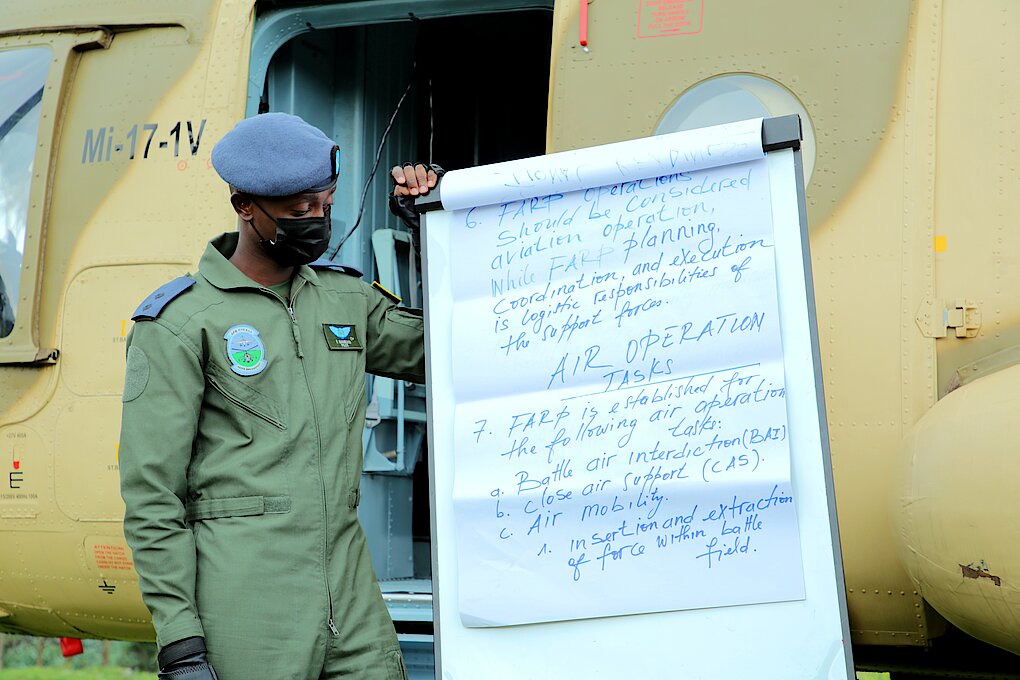 Mi-17-1V
6. FARP Operations
Should be considered
aviation operation,
While FARP planning,
Coordination, and execution
is logistic responsibilities of
the support forces.
AIR OPERATION
TASKS
7. FARP is established for
the following air operation
tasks:
a. Battle air interdiction (BAI)
b. Close air support (CAS).
c. Air mobility.
1. insertion and extraction
of force within battle
field.